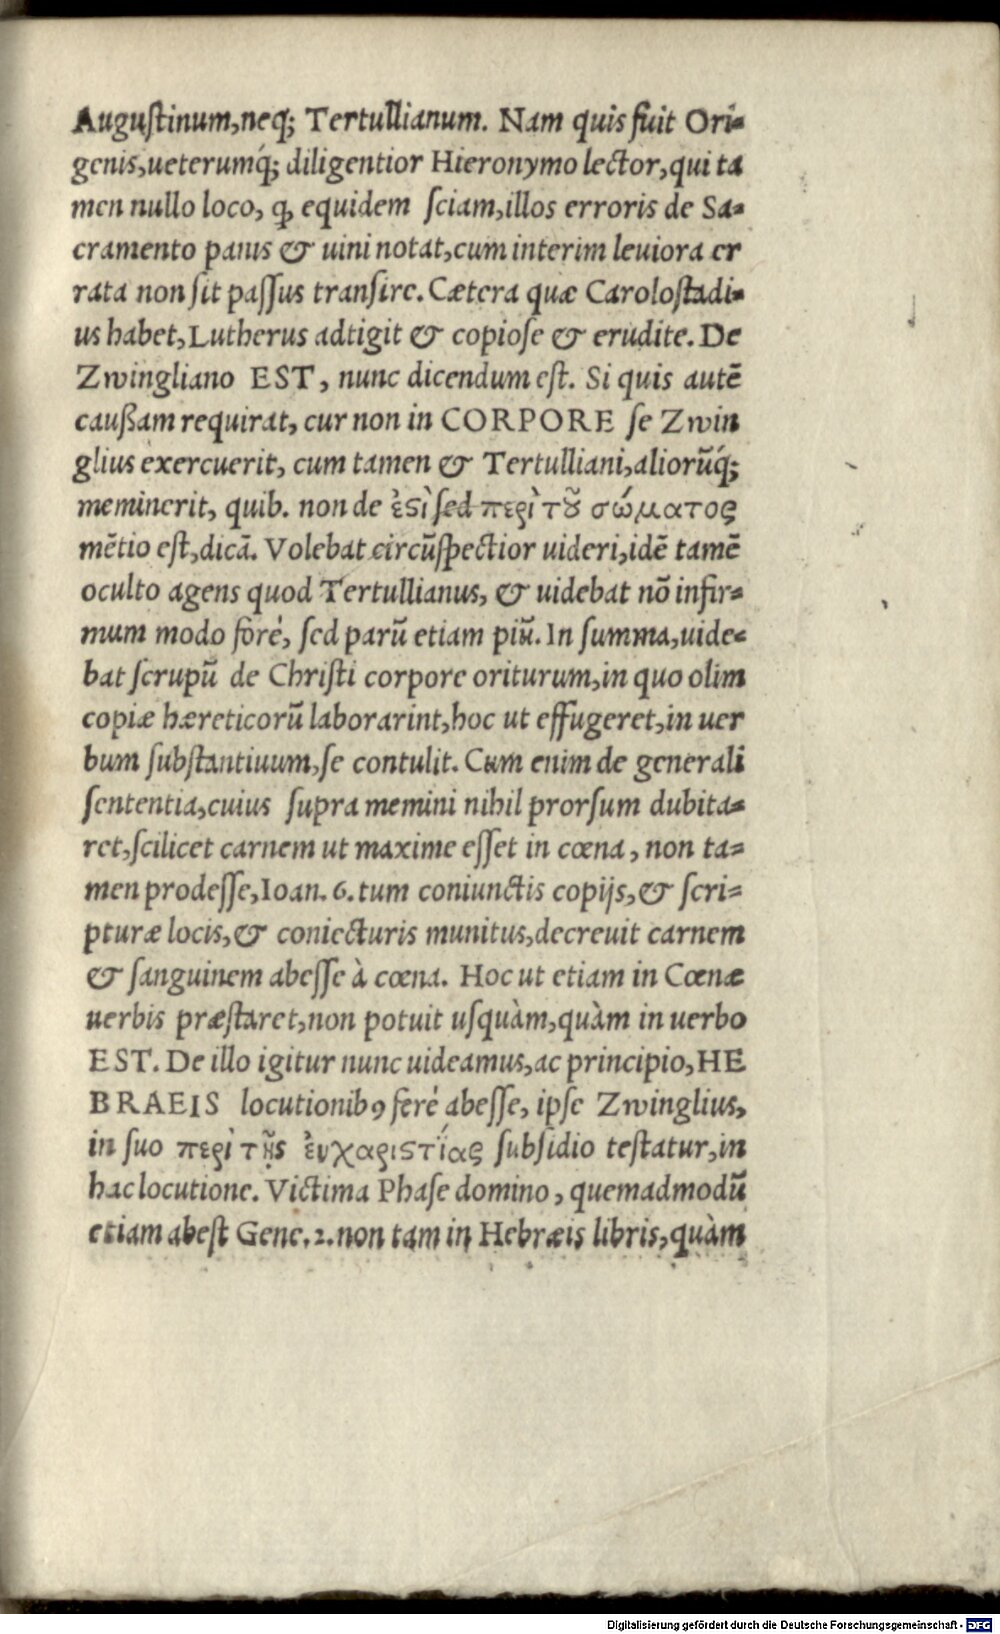 Auguſtinum,neq; Tertullianum. Nam quis fuit Ori-
genis,ueterumq́; diligentior Hieronymo lector,qui ta
men nullo loco, ꝙ equidem ſciam,illos erroris de Sa-
cramento panis & uini notat,cum interim leuiora er
rata non ſit paſſus tranſire. Cætera quæ Caroloſtadi-
us habet,Lutherus adtigit & copioſe & erudite. De
Zwingliano EST, nunc dicendum eſt. Si quis autē
cauſſam requirat, cur non in CORPORE ſe Zwin
glius exercuerit, cum tamen & Tertulliani,aliorūq́;
meminerit, quib. non de ἐϛὶ ſed περὶ τȣ͂ σώματος
mētio eſt,dicā. Volebat circūſpectior uideri,idē tamē
oculto agens quod Tertullianus, & uidebat nō infir-
mum modo forè, ſed parū etiam piū. In ſumma,uide-
bat ſcrupū de Chriſti corpore oriturum,in quo olim
copiæ hæreticorū laborarint,hoc ut effugeret,in uer
bum ſubſtantiuum,ſe contulit. Cum enim de generali
ſententia,cuius ſupra memini nihil prorſum dubita-
ret,ſcilicet carnem ut maxime eſſet in cœna, non ta-
men prodeſſe,Ioan. 6. tum coniunctis copijs,& ſcri-
pturæ locis,& coniecturis munitus,decreuit carnem
& ſanguinem abeſſe à cœna. Hoc ut etiam in Cœnæ
uerbis præſtaret,non potuit uſquàm,quàm in uerbo
EST. De illo igitur nunc uideamus,ac principio,HE
BRAEIS locutionibꝰ ferè abeſſe, ipſe Zwinglius,
in ſuo περὶ τῆς ἐυχαριϛίας ſubſidio teſtatur,in
hac locutione. Victima Phaſe domino, quemadmodū
etiam abeſt Gene.2.non tam in Hebræis libris,quàm
Digitalisierung gefördert durch die Deutsche Forschungsgemeinschaft - DFG